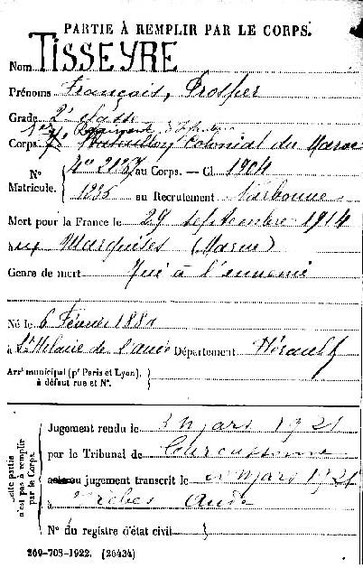 PARTIE À REMPLIR PAR LE CORPS.
Nom TISSEYRE
Prénoms François, Prosper
Grade 2e classe
Régiment d'Infanterie
Corps Bataillon Colonial du Maroc
N° Matricule. au Corps. — Cl. 1904
1235 au Recrutement Narbonne
Mort pour la France le 29 septembre 1914
(Marne)
Genre de mort Tué à l'ennemi
Né le 6 Février 1881
à St Hilaire de l'Aude Département Hérault
Arrt municipal (pr Paris et Lyon), à défaut rue et N°.
Cette partie n'est pas à remplir par le Corps.
Jugement rendu le mars 1921
par le Tribunal de Carcassonne
jugement transcrit le mars 1921
à Trèbes Aude
N° du registre d'état civil
269-708-1922. (26434)